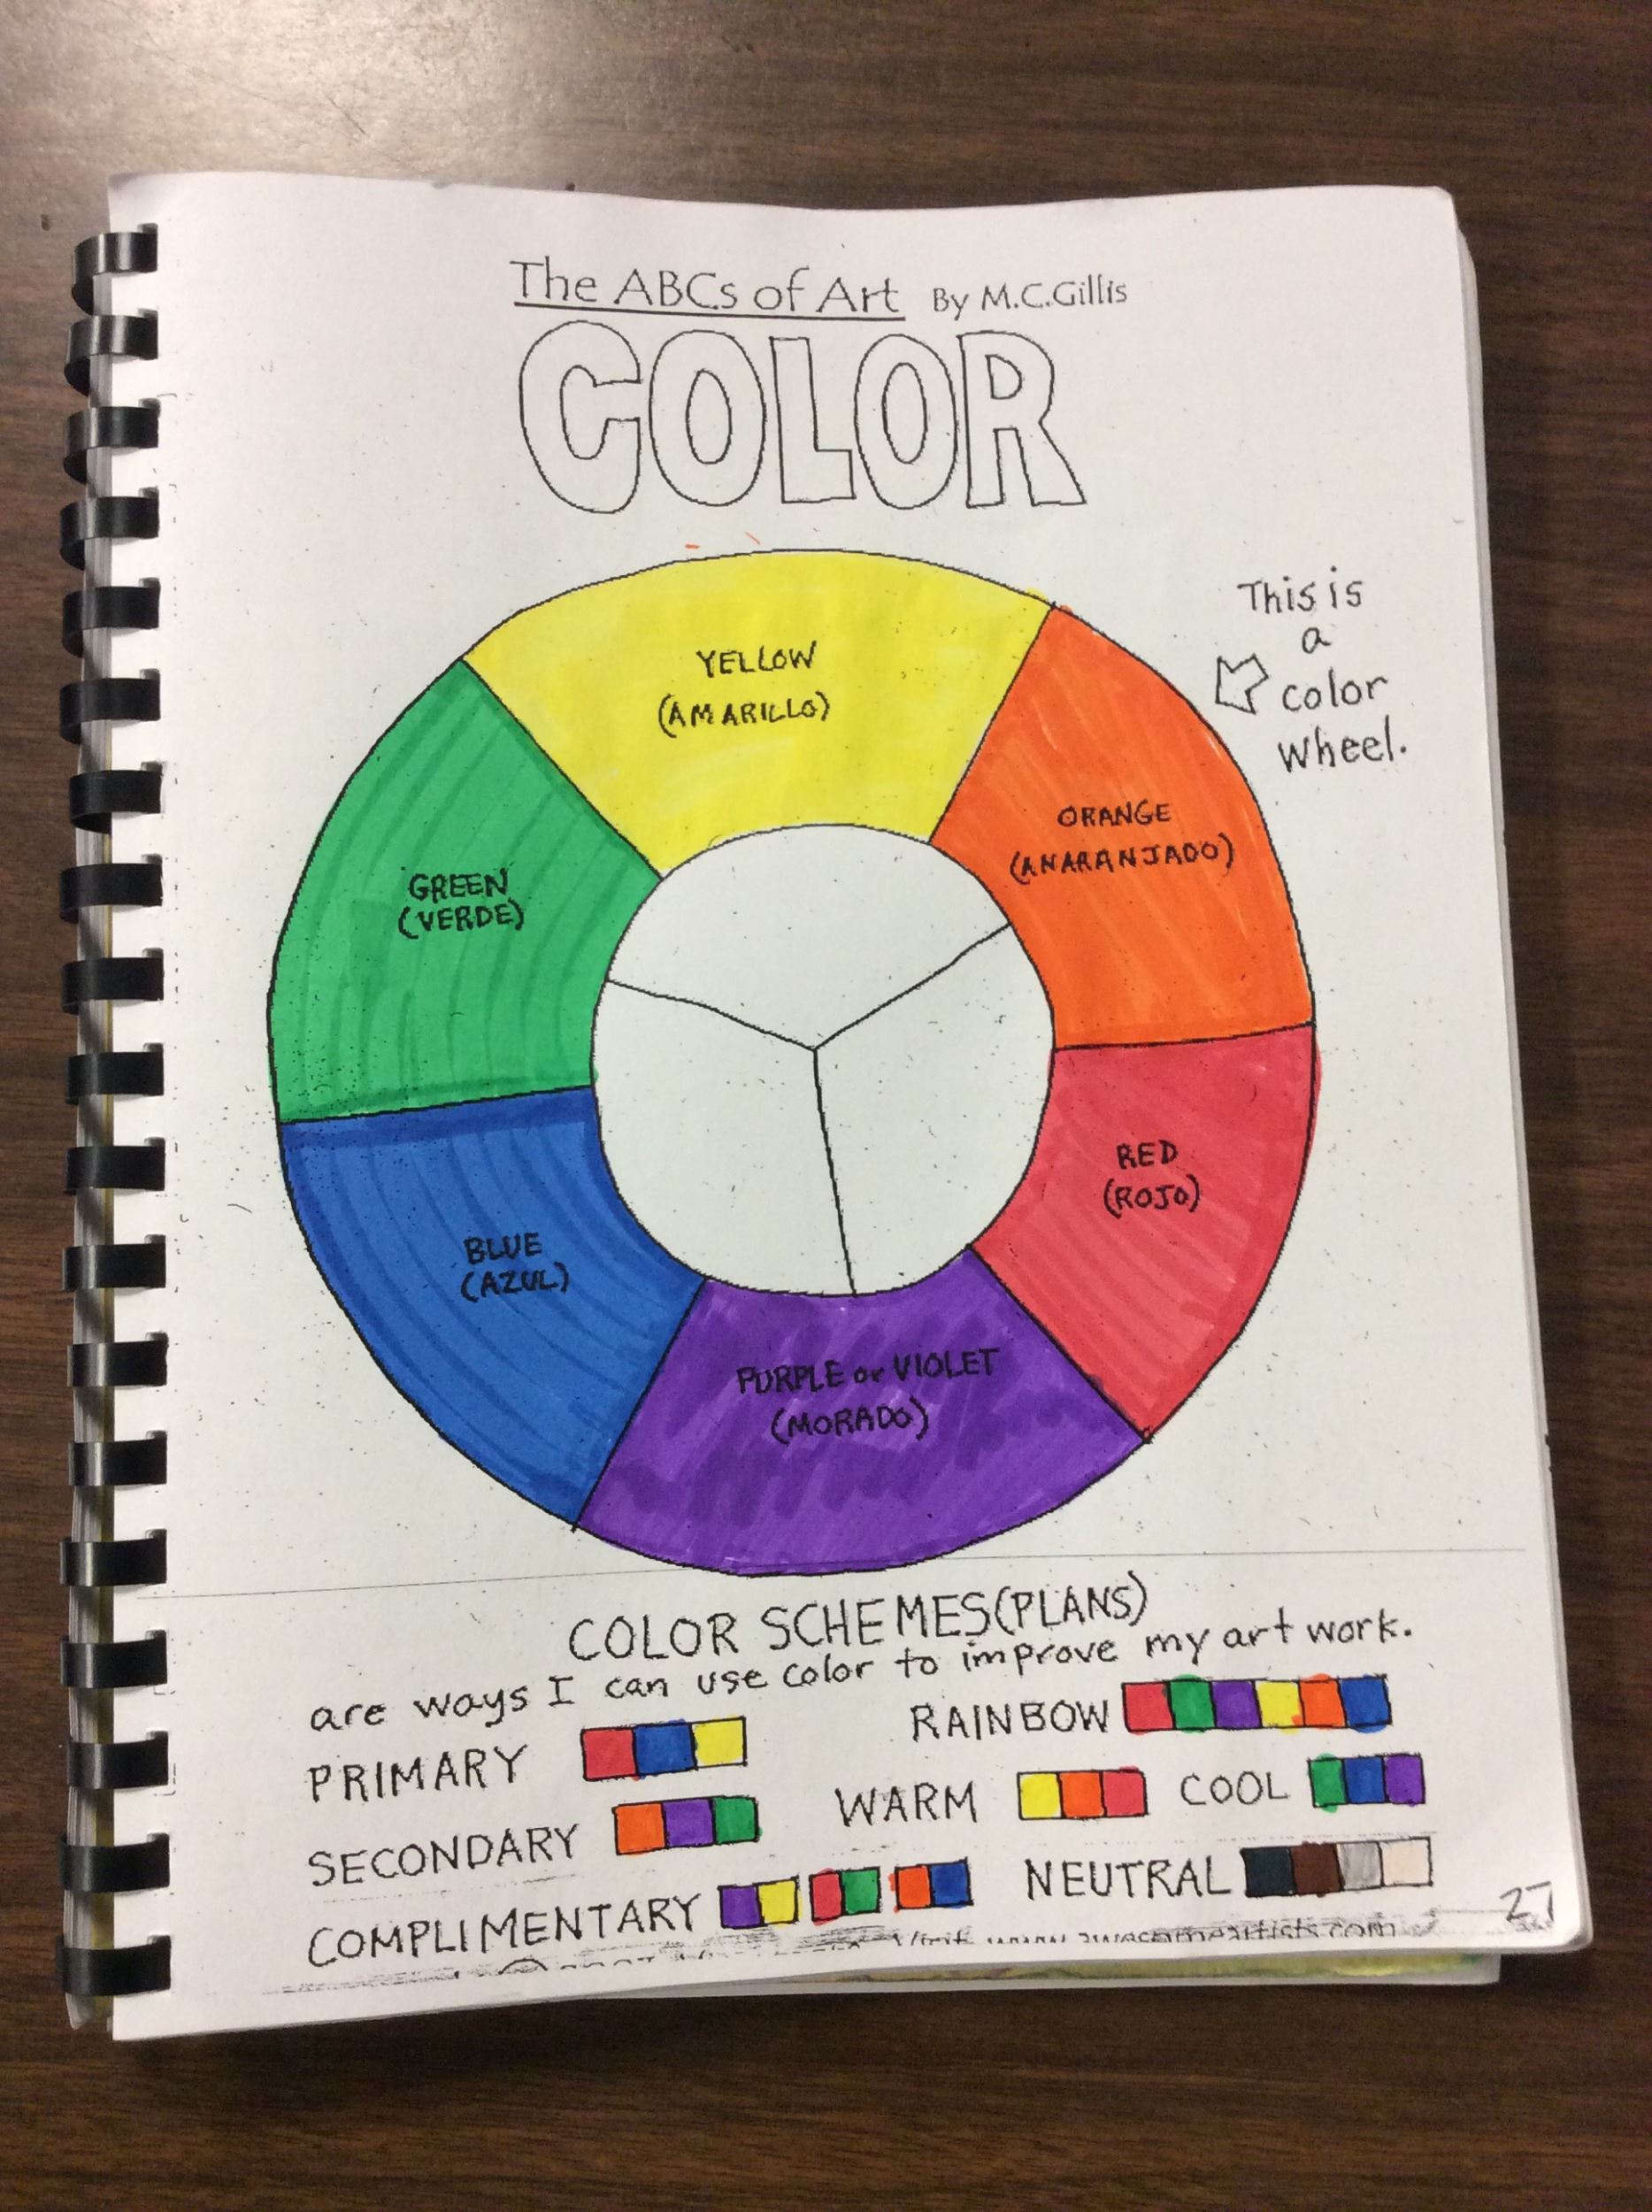 The ABCs of Art By M.C.Gillis
COLOR
This is
a
color
wheel.
YELLOW
(AMARILLO)
ORANGE
(ANARANJADO)
GREEN
(VERDE)
RED
(ROJO)
BLUE
(AZUL)
PURPLE or VIOLET
(MORADO)
COLOR SCHEMES(PLANS)
are ways I can use color to improve my art work.
PRIMARY
RAINBOW
SECONDARY
WARM
COOL
COMPLIMENTARY
NEUTRAL
Visit www.awesomeartists.com
27